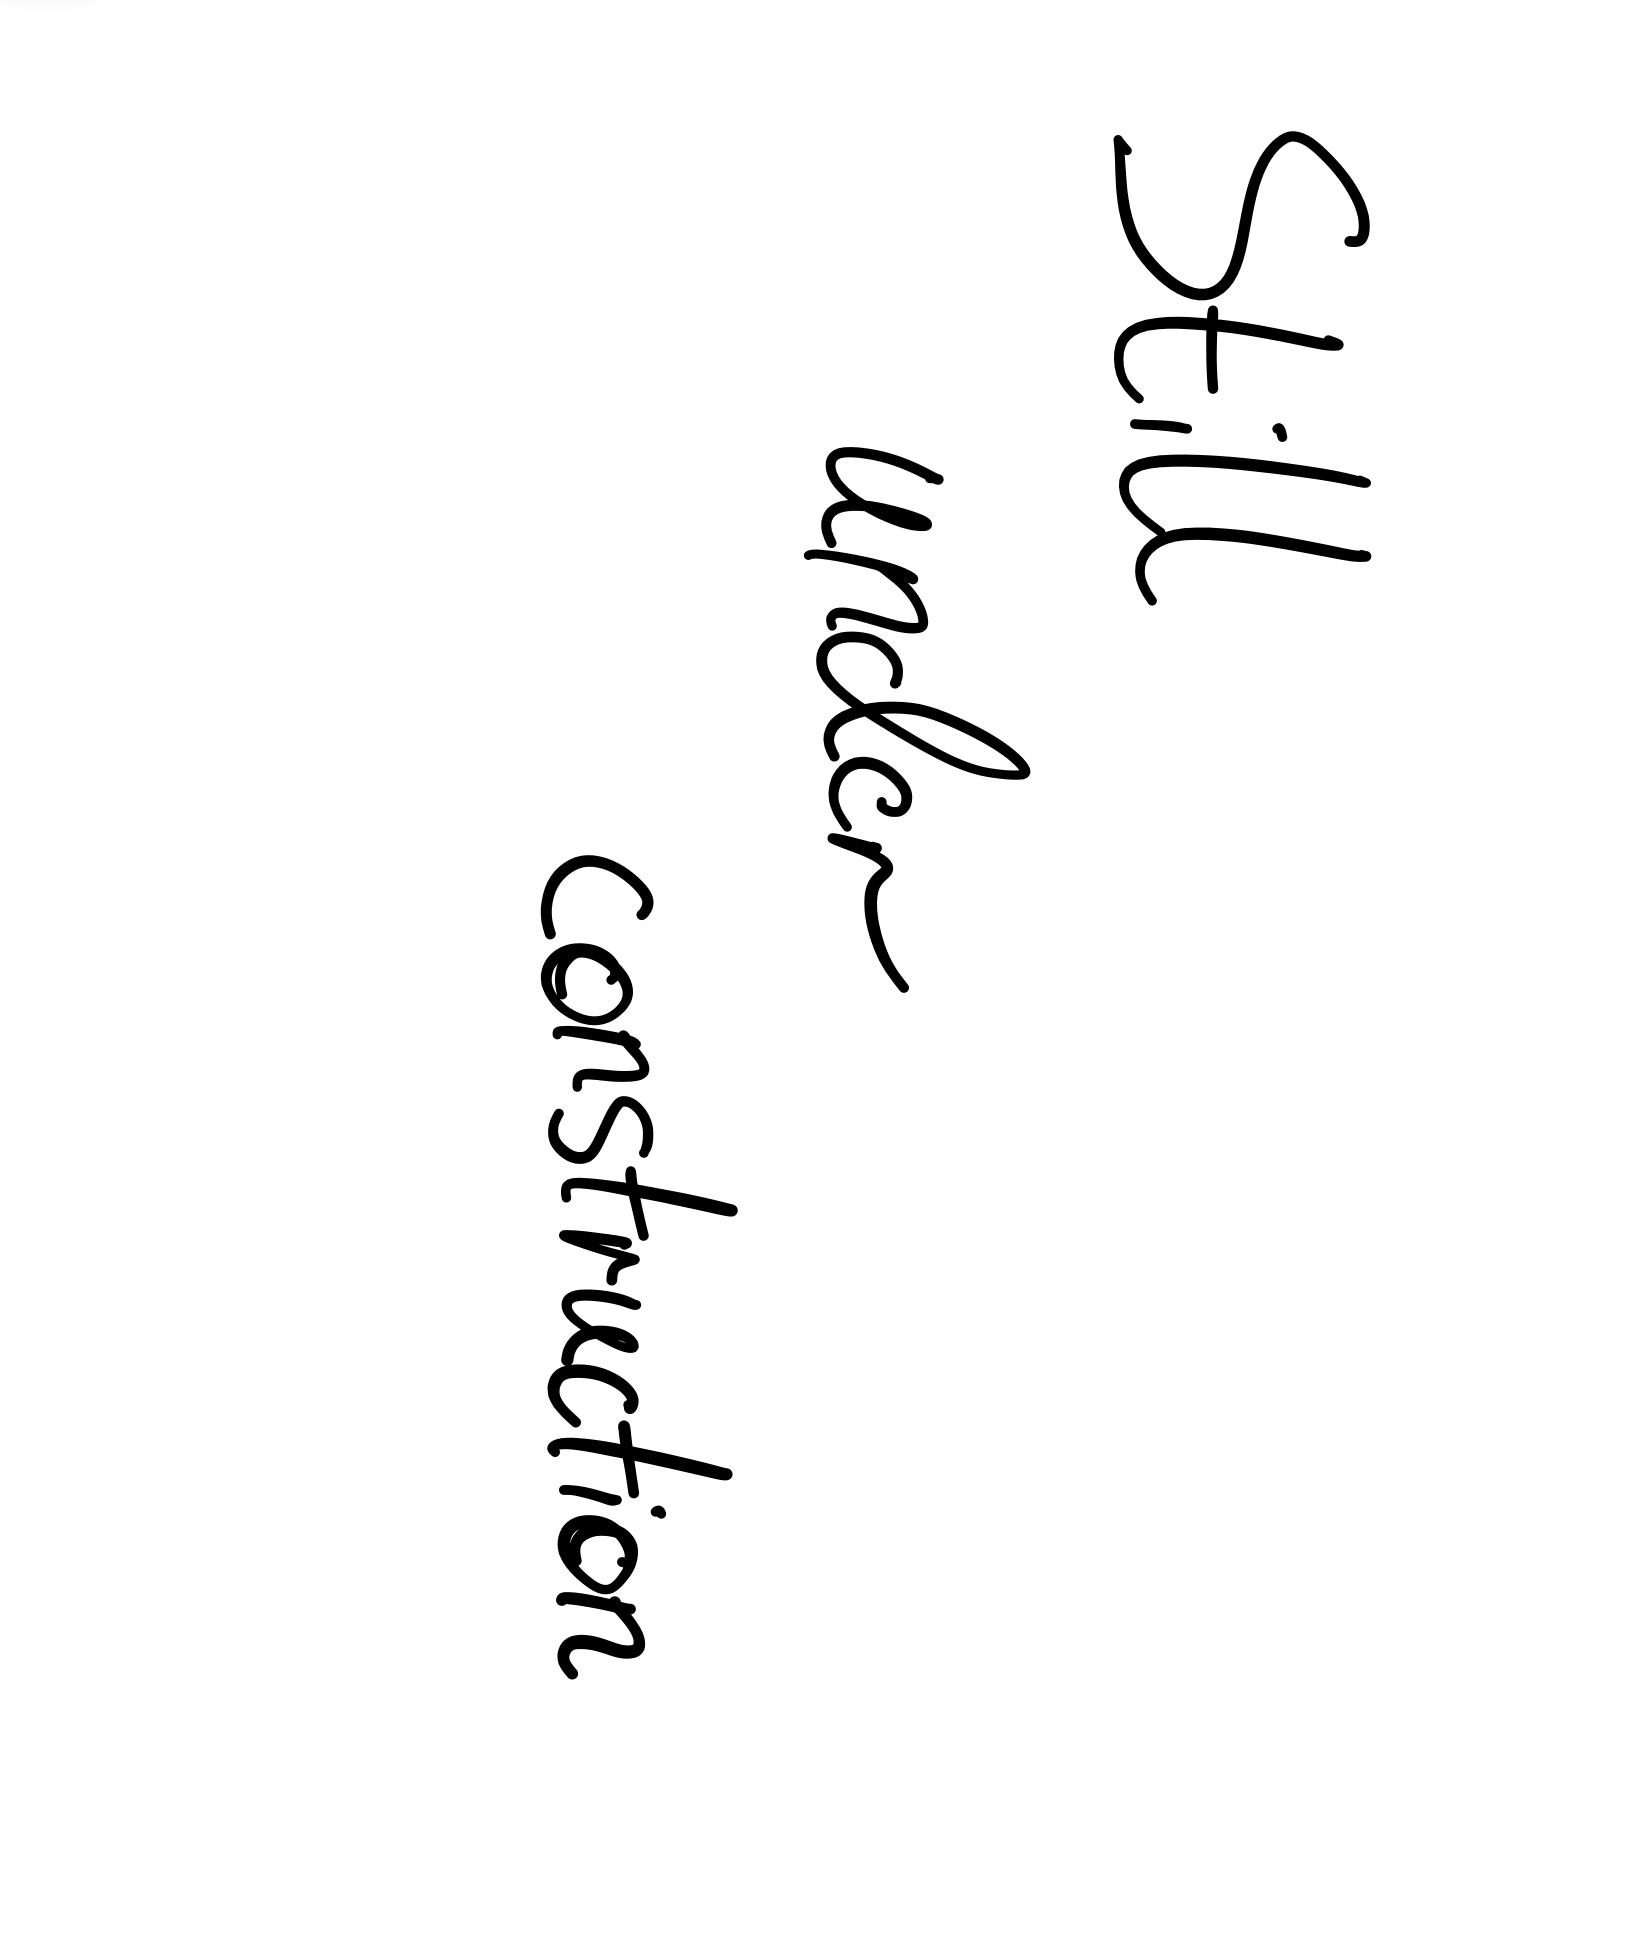 Still
under
construction